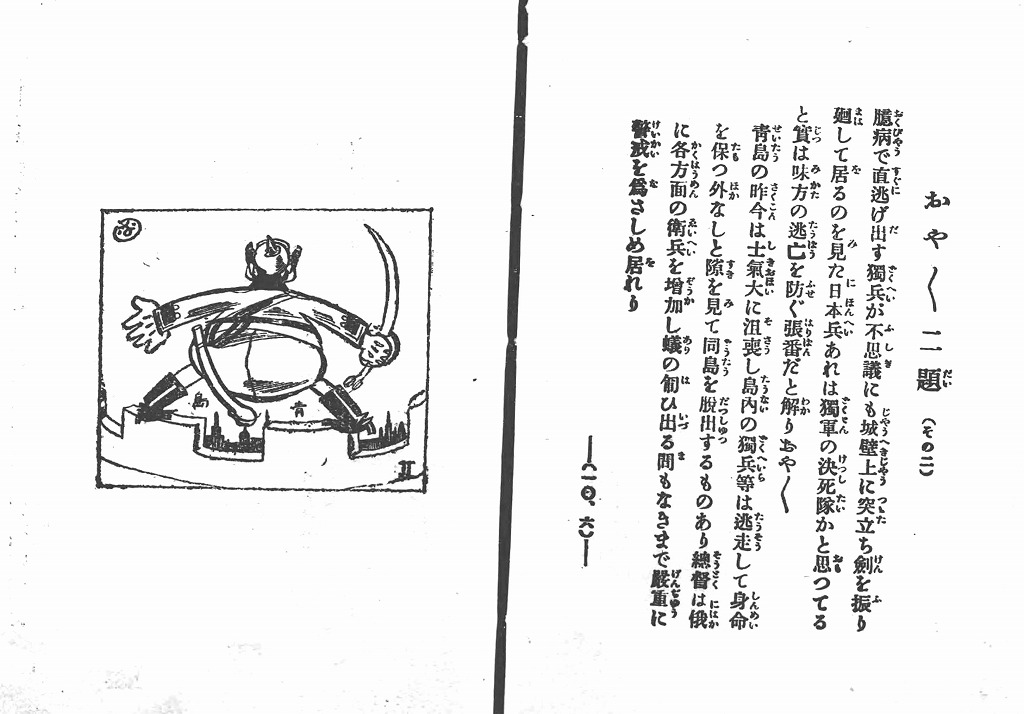 おや〱二題（その二）
臆病で直逃げ出す獨兵が不思議にも城壁上に突立ち劍を振り
廻して居るのを見た日本兵あれは獨軍の決死隊かと思つてる
と實は味方の逃亡を防ぐ張番だと解りおや〱
靑島の昨今は士氣大に沮喪し島內の獨兵等は逃走して身命
を保つ外なしと隙を見て同島を脫出するものあり總督は俄
に各方面の衛兵を增加し蟻の匍ひ出る間もなきまで嚴重に
警戒を爲さしめ居れり
―（一〇、六）―
靑島